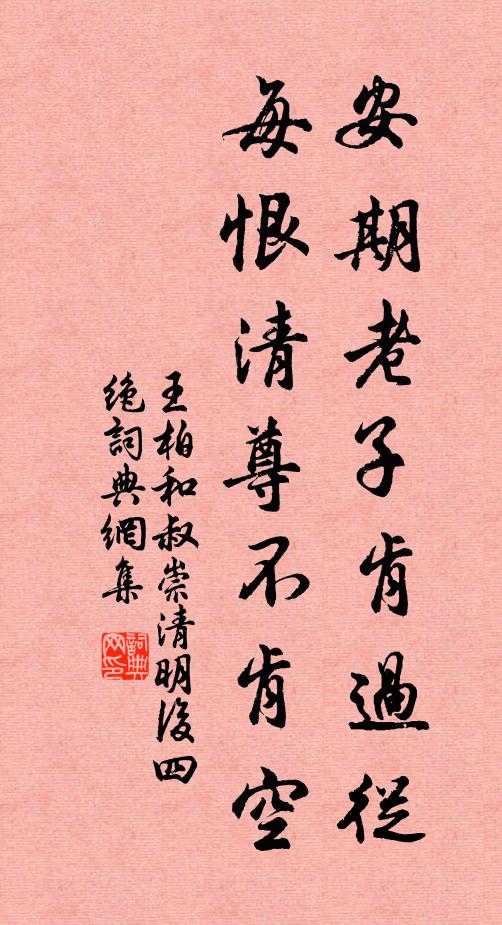 安期老子肯過從
每恨清尊不肯空
王柏和叔崇清明後四
絶詞典網集
詞典网印